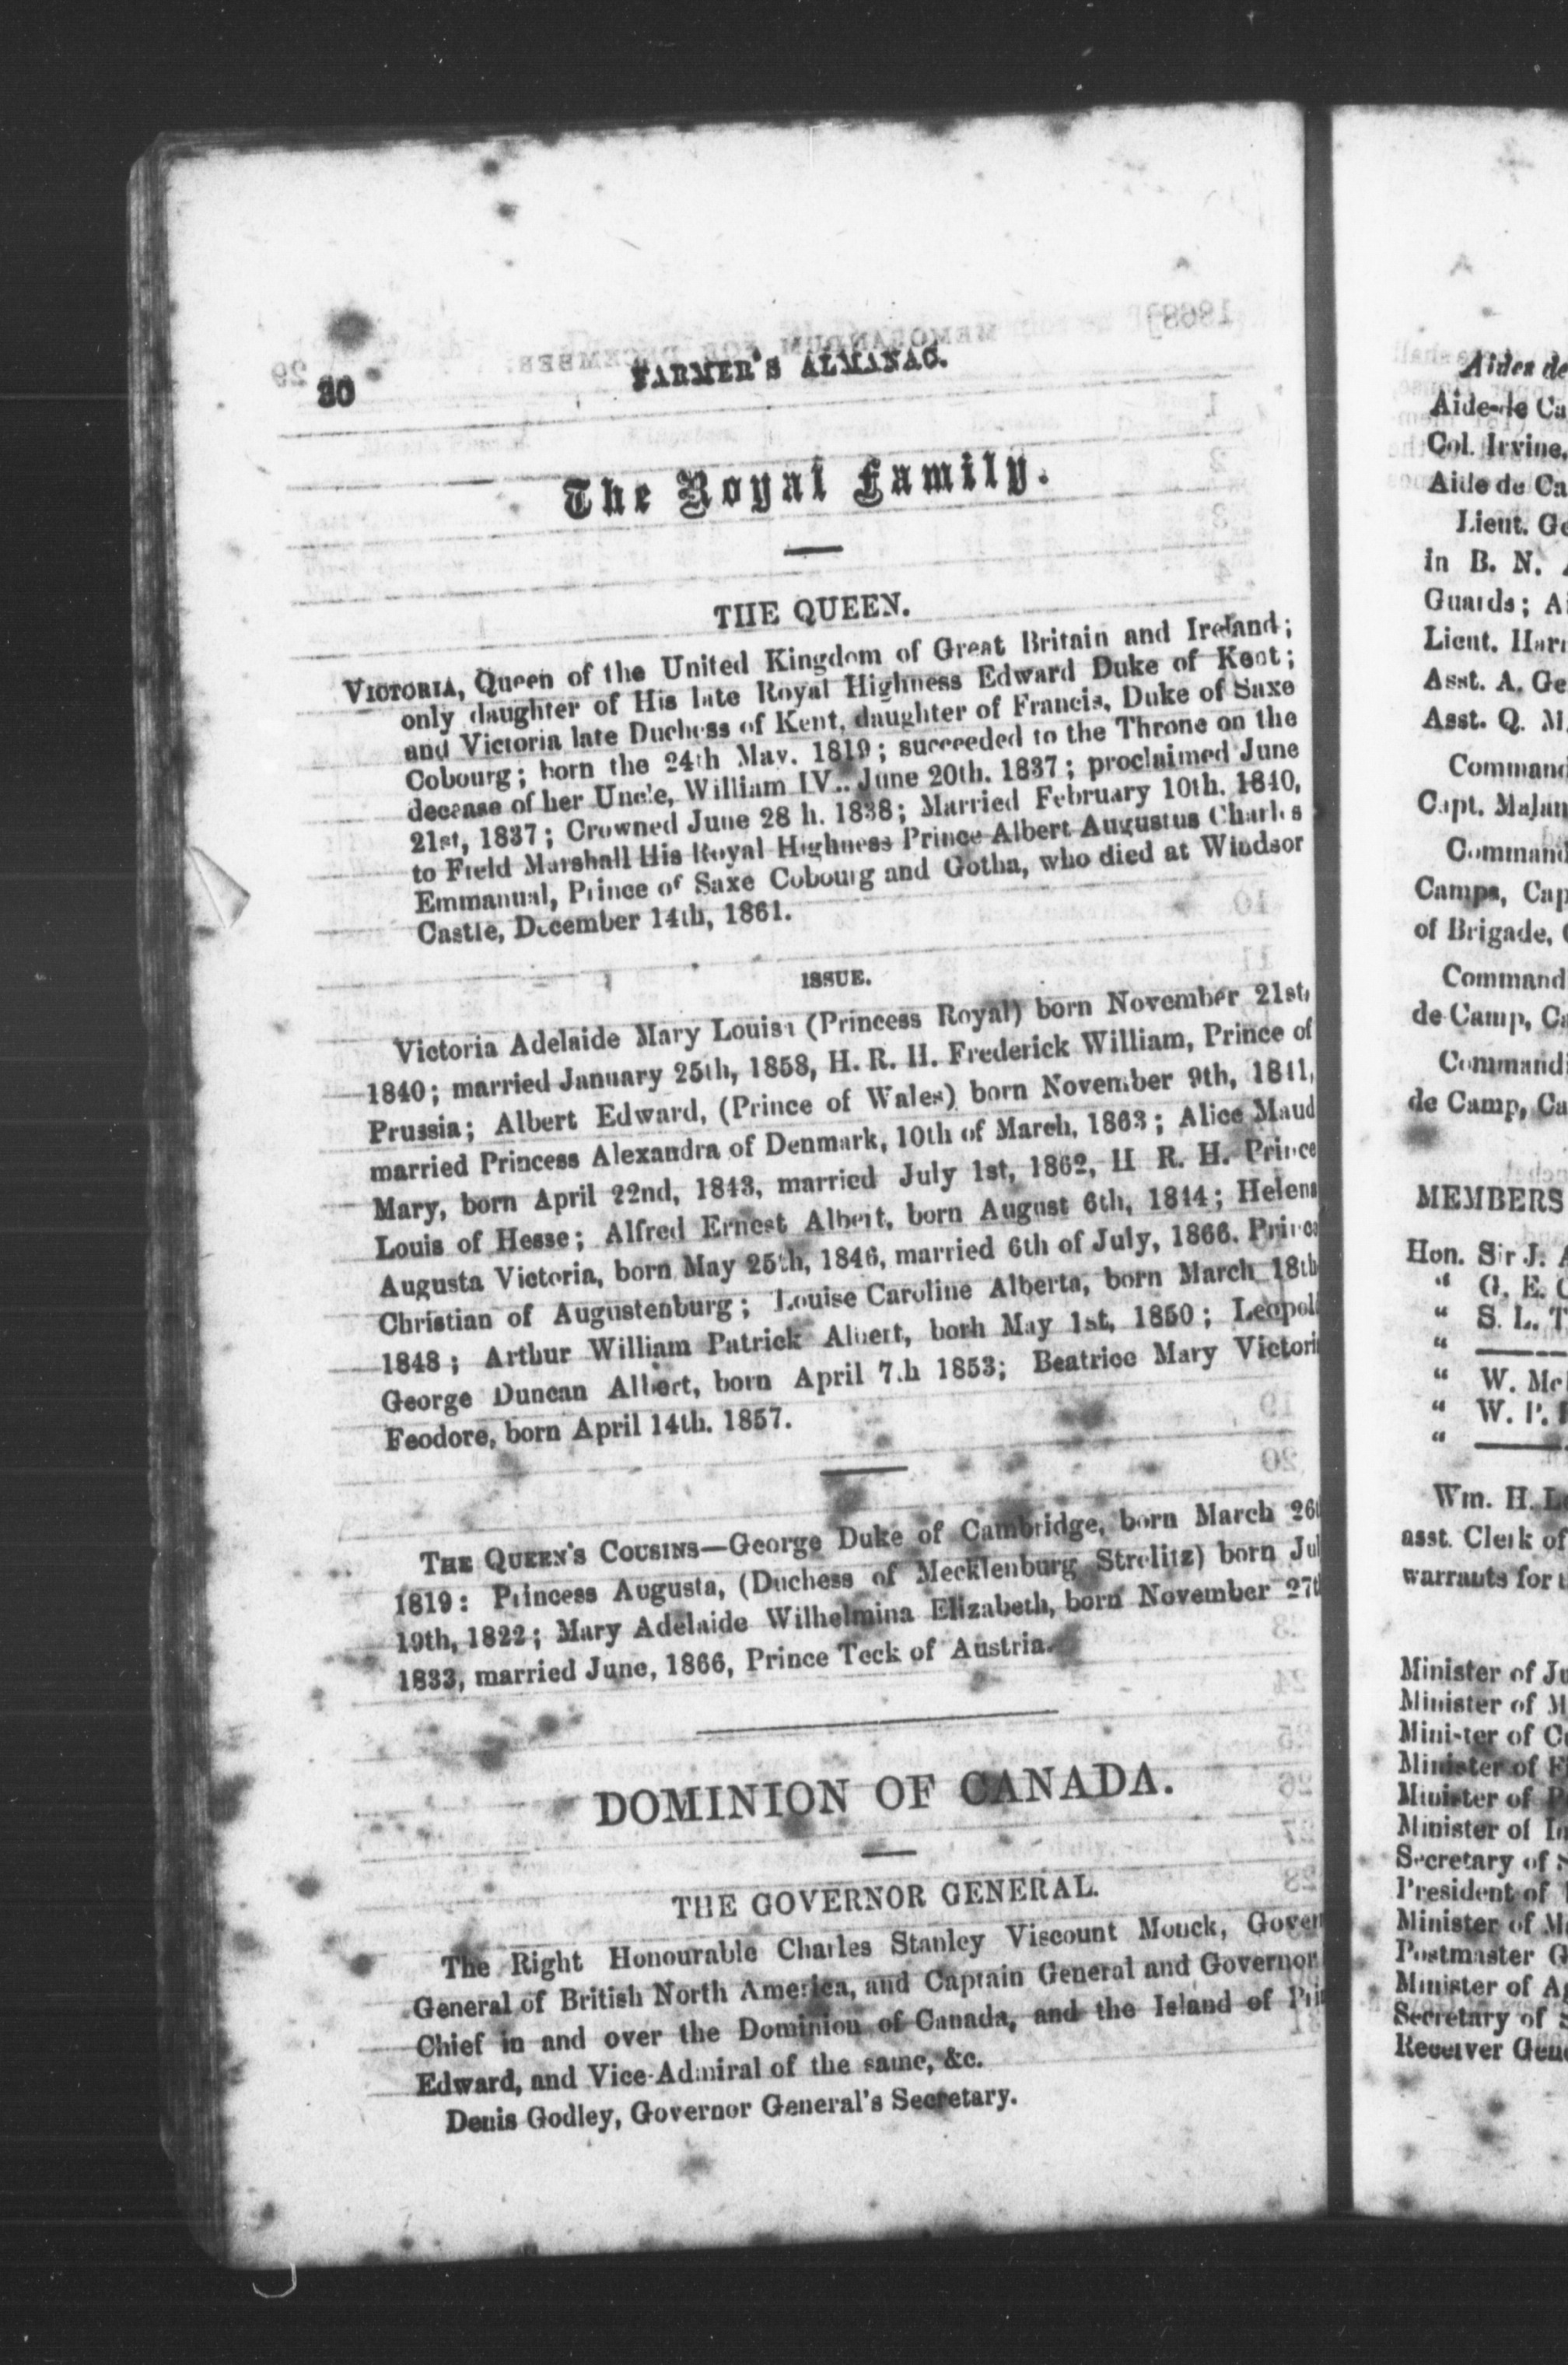 30 FARMER'S ALMANAC.
The Royal Family.
THE QUEEN.
VICTORIA, Queen of the United Kingdom of Great Britain and Ireland;
only daughter of His late Royal Highness Edward Duke of Kent;
and Victoria late Duchess of Kent, daughter of Francis, Duke of Saxe
Cobourg; born the 24th May. 1819; succeeded to the Throne on the
decease of her Uncle, William IV.. June 20th. 1837; proclaimed June
21st, 1837; Crowned June 28 h. 1838; Married February 10th. 1840,
to Field Marshall His Royal Highness Prince Albert Augustus Charles
Emmanual, Prince of Saxe Cobourg and Gotha, who died at Windsor
Castle, December 14th, 1861.
ISSUE.
Victoria Adelaide Mary Louisa (Princess Royal) born November 21st,
1840; married January 25th, 1858, H. R. H. Frederick William, Prince of
Prussia; Albert Edward, (Prince of Wales) born November 9th, 1841,
married Princess Alexandra of Denmark, 10th of March, 1863; Alice Maud
Mary, born April 22nd, 1843, married July 1st, 1862, H R. H. Prince
Louis of Hesse; Alfred Ernest Albert, born August 6th, 1844; Helena
Augusta Victoria, born May 25th, 1846, married 6th of July, 1866. Prince
Christian of Augustenburg; Louise Caroline Alberta, born March 18th
1848; Arthur William Patrick Albert, born May 1st, 1850; Leopol
George Duncan Albert, born April 7.h 1853; Beatrice Mary Victori
Feodore, born April 14th. 1857.
THE QUEEN'S COUSINS—George Duke of Cambridge, born March 26t
1819: Princess Augusta, (Duchess of Mecklenburg Strelitz) born Jul
19th, 1822; Mary Adelaide Wilhelmina Elizabeth, born November 27t
1833, married June, 1866, Prince Teck of Austria.
DOMINION OF CANADA.
THE GOVERNOR GENERAL.
The Right Honourable Charles Stanley Viscount Monck, Gover
General of British North America, and Captain General and Governor
Chief in and over the Dominion of Canada, and the Island of Pri
Edward, and Vice-Admiral of the same, &c.
Denis Godley, Governor General's Secretary.
Aides de
Aide-de Ca
Col. Irvine,
Aide de Ca
Lieut. Ge
in B. N.
Guards; A
Lieut. Har
Asst. A. Ge
Asst. Q. M
Command
Capt. Malan
Command
Camps, Cap
of Brigade,
Command
de Camp, Ca
Command
de Camp, Ca
MEMBERS
Hon. Sir J. A
" G. E. C
" S. L. T
" ——
" W. Mc
" W. P.
" ——
Wm. H. L
asst. Clerk of
warrants for
Minister of Ju
Minister of M
Minister of Cu
Minister of F
Minister of P
Minister of In
Secretary of S
President of
Minister of M
Postmaster G
Minister of A
Secretary of S
Receiver Gen